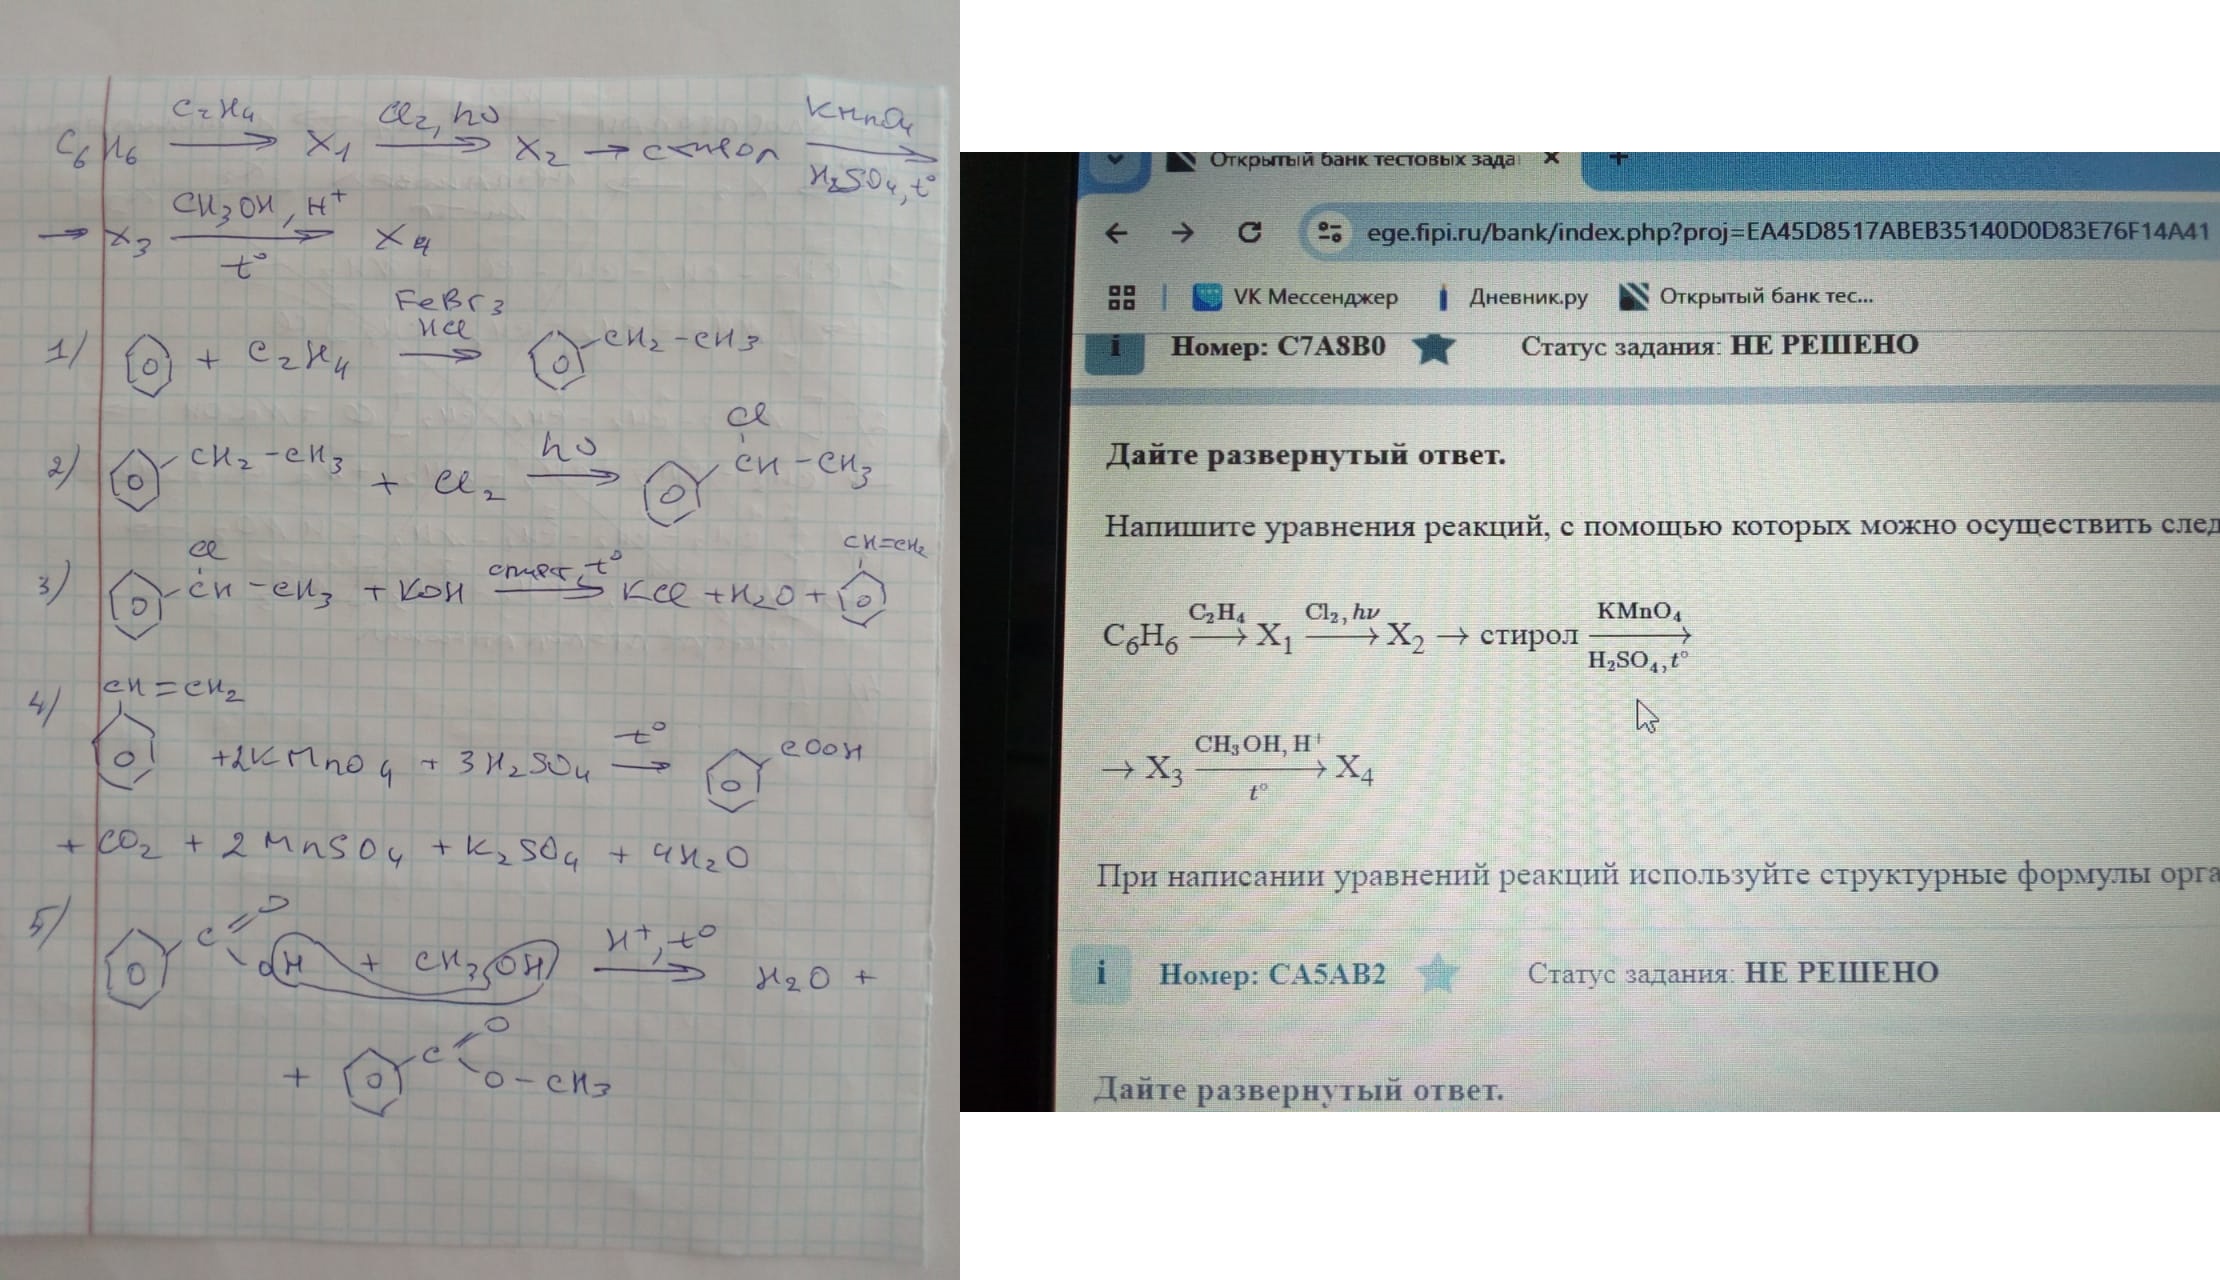 C₆H₆ —C₂H₄→ X₁ —Cl₂, hν→ X₂ → стирол —KMnO₄ / H₂SO₄, t°→
→ X₃ —CH₃OH, H⁺ / t°→ X₄
1) + C₂H₄ —FeBr₃ / HCl→ CH₂-CH₃
2) CH₂-CH₃ + Cl₂ —hν→ Cl CH-CH₃
3) Cl CH-CH₃ + KOH —спирт, t°→ KCl + H₂O + CH=CH₂
4) CH=CH₂ +2KMnO₄ + 3H₂SO₄ —t°→ COOH
+ CO₂ + 2MnSO₄ + K₂SO₄ + 4H₂O
5) C O OH + CH₃OH —H⁺, t°→ H₂O +
+ C O O-CH₃
Открытый банк тестовых зада × +
ege.fipi.ru/bank/index.php?proj=EA45D8517ABEB35140D0D83E76F14A41
VK Мессенджер Дневник.ру Открытый банк тес...
i Номер: C7A8B0 Статус задания: НЕ РЕШЕНО
Дайте развернутый ответ.
Напишите уравнения реакций, с помощью которых можно осуществить след
C₆H₆ —C₂H₄→ X₁ —Cl₂, hν→ X₂ → стирол —KMnO₄ / H₂SO₄, t°→
→ X₃ —CH₃OH, H⁺ / t°→ X₄
При написании уравнений реакций используйте структурные формулы орга
i Номер: CA5AB2 Статус задания: НЕ РЕШЕНО
Дайте развернутый ответ.